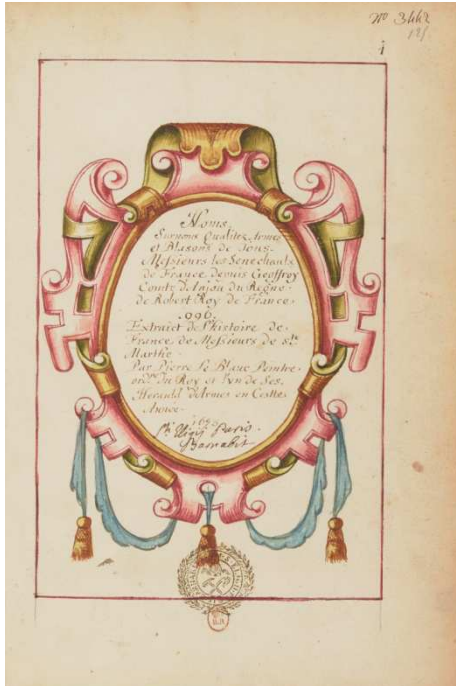 No 3442
1
Noms,
Surnoms Qualitez, Armes
et Blasons de Tous
Messieurs les Senechaux
de France depuis Geoffroy
Comte de Anjou du Regne
de Robert Roy de France
.096.
Extraict de L'histoire de
France de Messieurs de ste
Marthe
Par Pierre Le Blanc Peintre
ordre du Roy et L'vn de Ses
Herauld d'Armes en Ceste
Annee
Sti Eligii Paris.
Barnabit